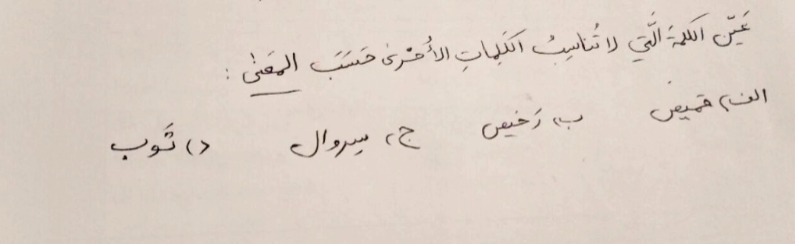 عَيِّن الكلمةَ الَّتي لا تُناسِبُ الكَلِماتِ الأُخْرىٰ حَسَبَ المَعنیٰ :
الف) قميص ب) رَخيص ج) سِروال د) ثَوب